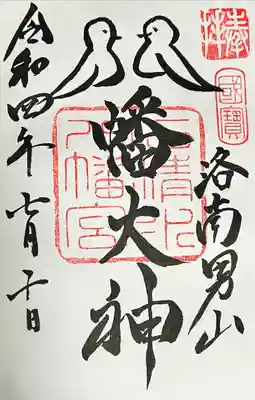 奉拝
國寶
洛南男山
八幡大神
石清水
八幡宮
令和四年七月十日